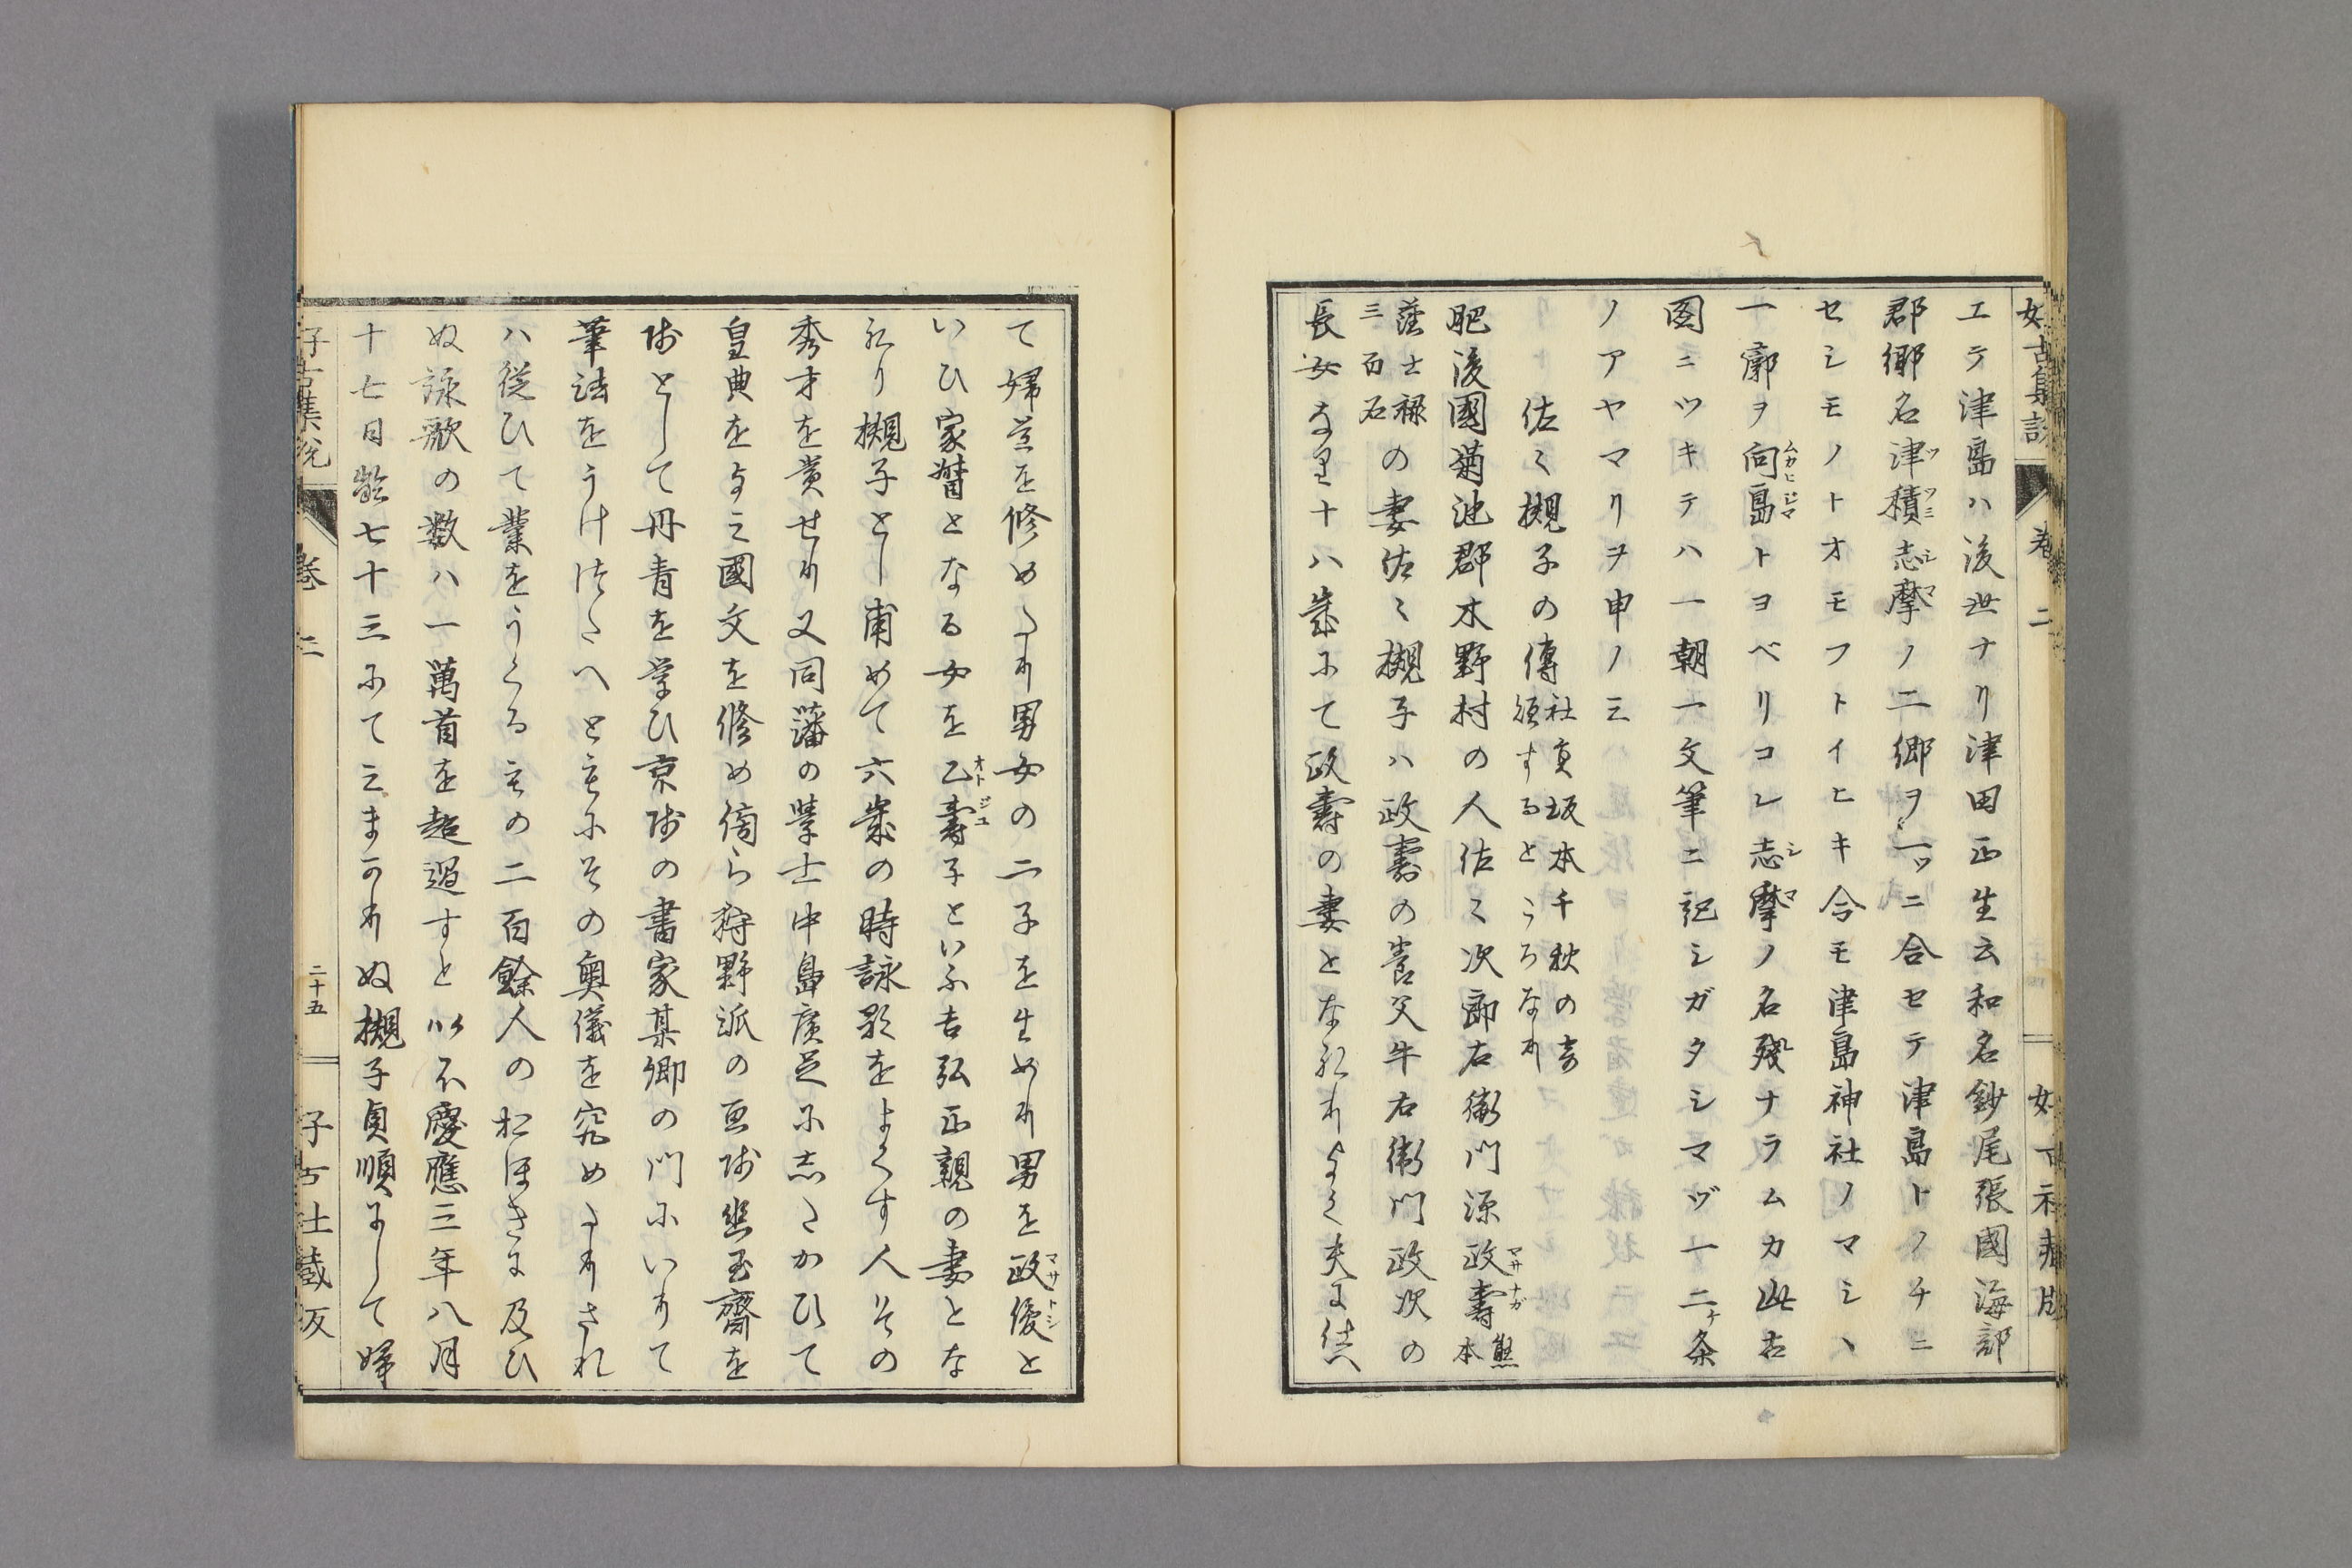 エテ津島ハ後世ナリ津田正生云和名鈔尾張國海部
郡郷名津積志摩ノ二郷ヲ一ツニ合セテ津島トノチニ
セシモノトオモフトイヒキ今モ津島神社ノマシヽ
一廓ヲ向島トヨベリコレ志摩ノ名殘ナラムカ此古
圖ニツキテハ一朝一文筆ニ記シガタシマヅ一二ヶ条
ノアヤマリヲ申ノミ
佐々槻子の傳 社員坂本千秋の寄
頒するところなり
肥後國菊池郡木野村の人佐々次郎右衞門源政壽 熊
本
藩士禄
三百石の妻佐々槻子ハ政壽の養父牛右衞門政次の
長女なり十八歳にて政壽の妻となれりよく夫に仕へ
て婦道を修めたり男女の二子を生めり男を政優と
いひ家督となる女を乙壽子といふ吉弘正親の妻とな
れり槻子とし甫めて六歳の時詠歌をよくす人その
秀才を賞せり又同藩の學士中島廣足にしたかひて
皇典を学ひ國文を修め傍ら狩野派の画師幽玉齋を
師として丹青を学ひ京師の書家某卿の門にいりて
筆法をうけ
の奥儀を究めたりされ
ハ從ひて業をうくるもの二百餘人のおほきに及ひ
ぬ詠歌の数ハ一萬首を超過すと
慶應三年八月
十七日齢七十三にてみまかりぬ槻子貞順にして婦
卷二
二十五